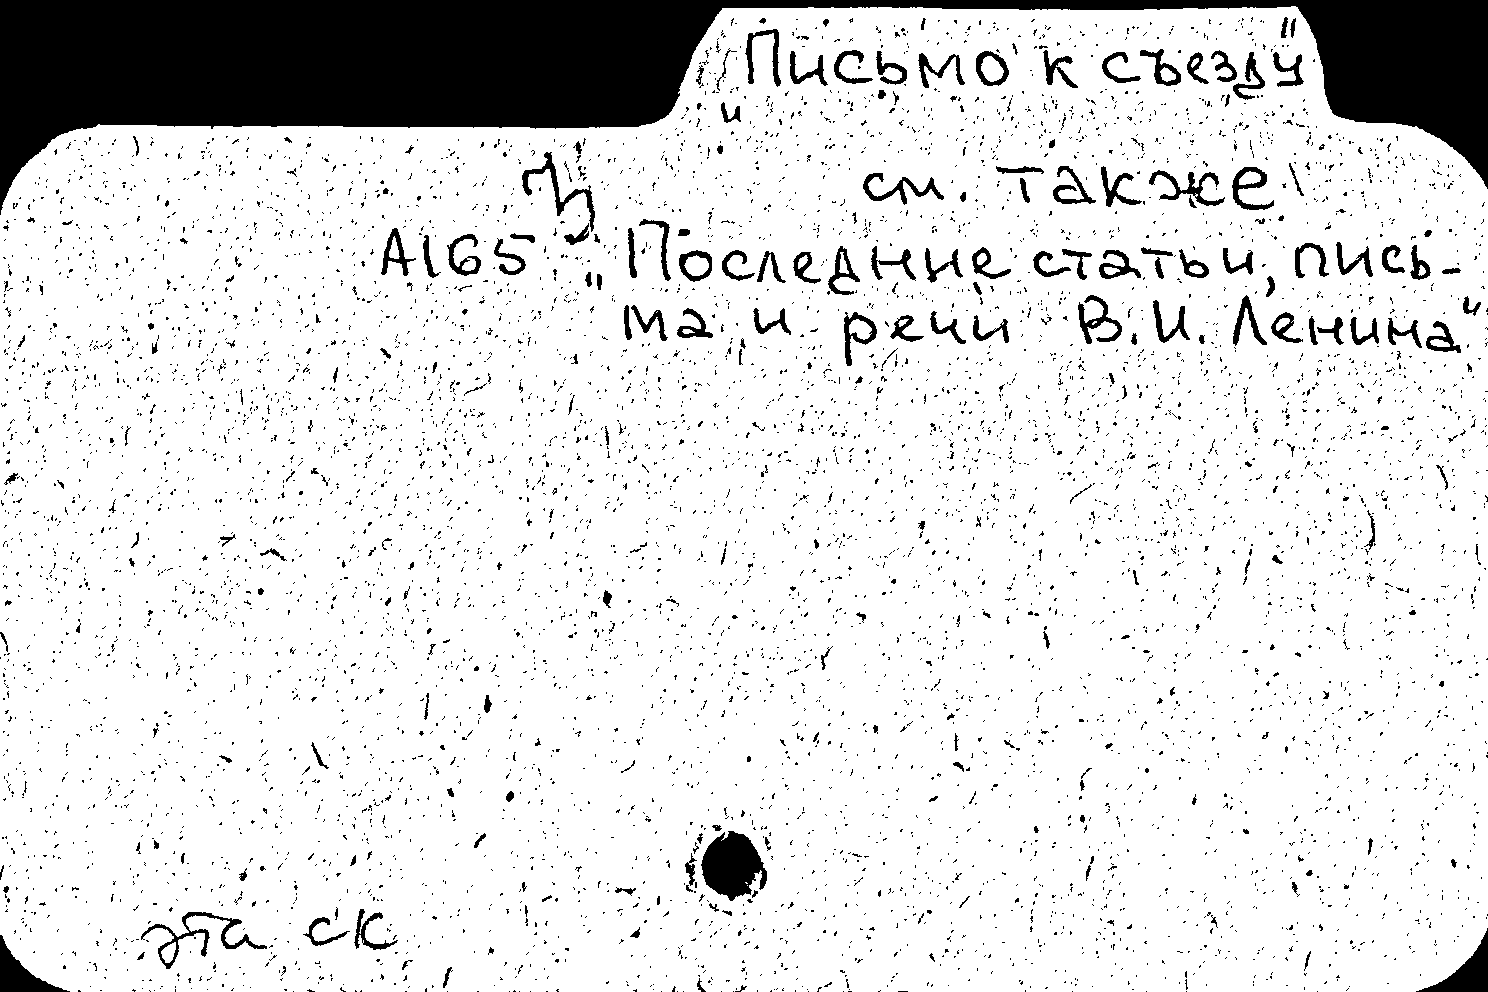 „Письмо к съезду"
см. также
А165 „Последние статьи, пись-
ма и речи В.И. Ленина"
эта ск